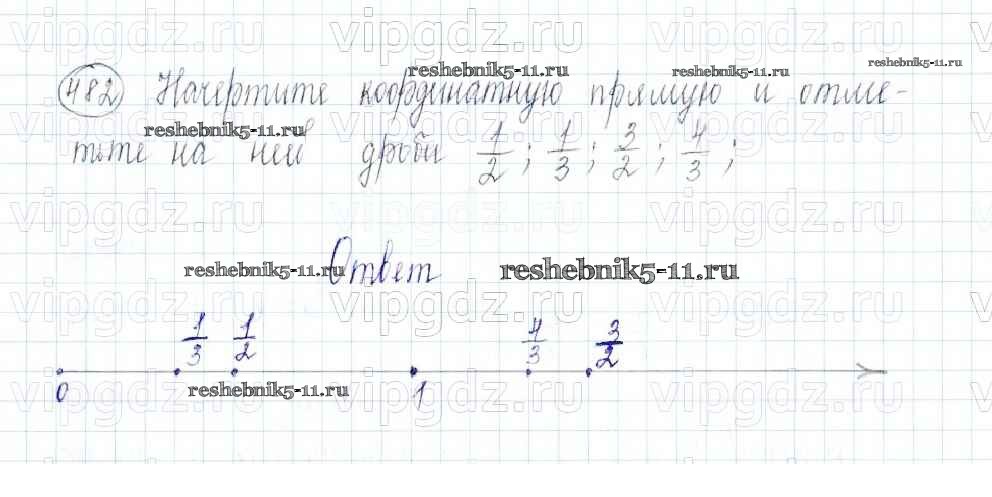 vipgdz.ru vipgdz.ru vipgdz.ru
reshebnik5-11.ru reshebnik5-11.ru reshebnik5-11.ru
482 Начертите координатную прямую и отме-
reshebnik5-11.ru
тьте на ней дроби 1/2; 1/3; 3/2; 4/3;
vipgdz.ru vipgdz.ru vipgdz.ru
Ответ
reshebnik5-11.ru reshebnik5-11.ru
vipgdz.ru vipgdz.ru vipgdz.ru
1/3 1/2 4/3 3/2
0 1
reshebnik5-11.ru
vipgdz.ru vipgdz.ru vipgdz.ru